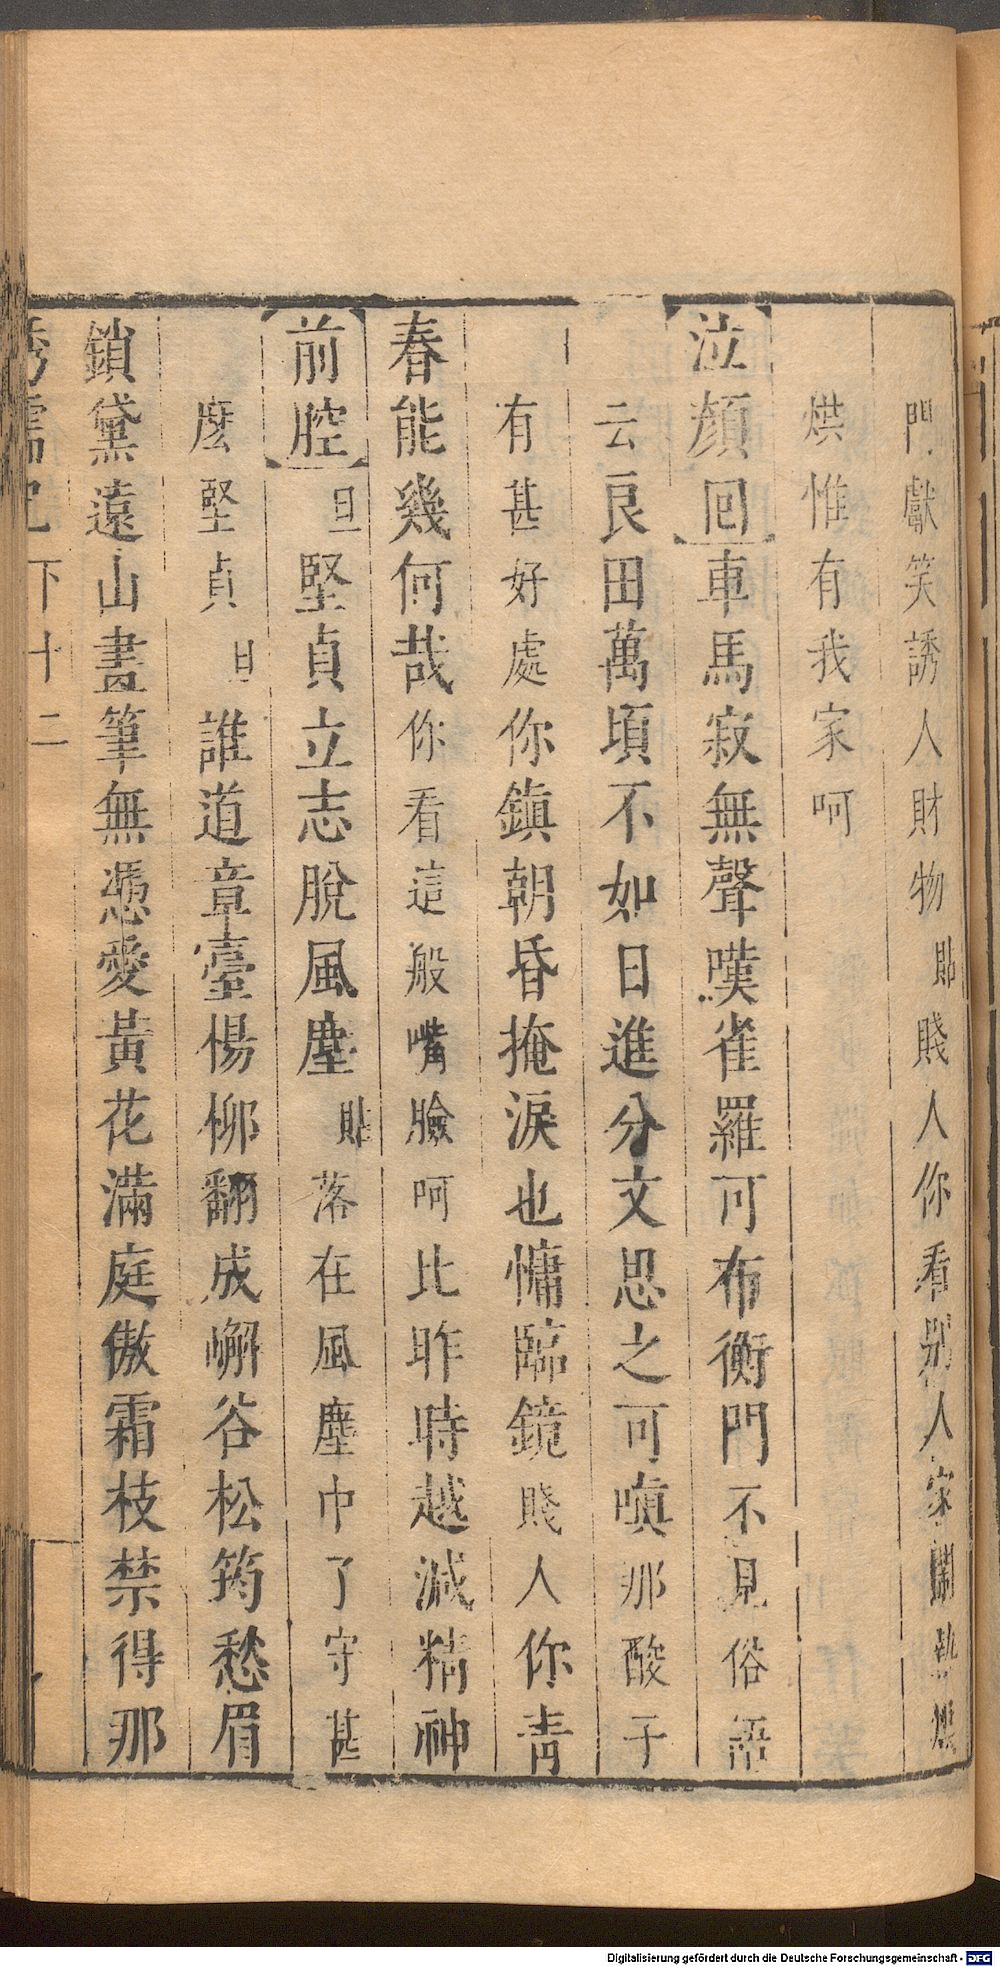 門獻笑誘人財物貼賤人你看别人家閙熱烘
烘惟有我家呵
泣顔回車馬寂無聲嘆雀羅可布衡門不見俗語
云良田萬頃不如日進分文思之可嗔那酸子
有甚好處你鎮朝昏掩淚也慵臨鏡賤人你青
春能幾何哉你看這般嘴臉呵比昨時越減精神
前腔旦堅貞立志脫風塵貼落在風塵巾了守甚
麽堅貞旦誰道章臺楊柳翻成嶰谷松筠愁眉
鎖黛遠山畫筆無憑愛黃花滿庭傲霜枝禁得那
繡襦記下十二
Digitalisierung gefördert durch die Deutsche Forschungsgemeinschaft - DFG